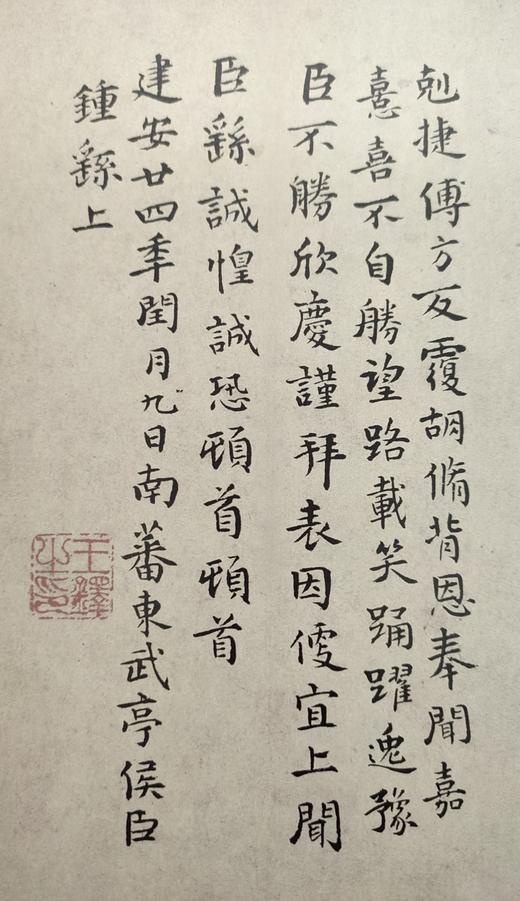 剋捷傅方反覆胡脩背恩奉聞嘉
憙喜不自勝望路載笑踊躍逸豫
臣不勝欣慶謹拜表因便宜上聞
臣繇誠惶誠恐頓首頓首
建安廿四年閏月九日南蕃東武亭侯臣
鍾繇上
王鐸
之印